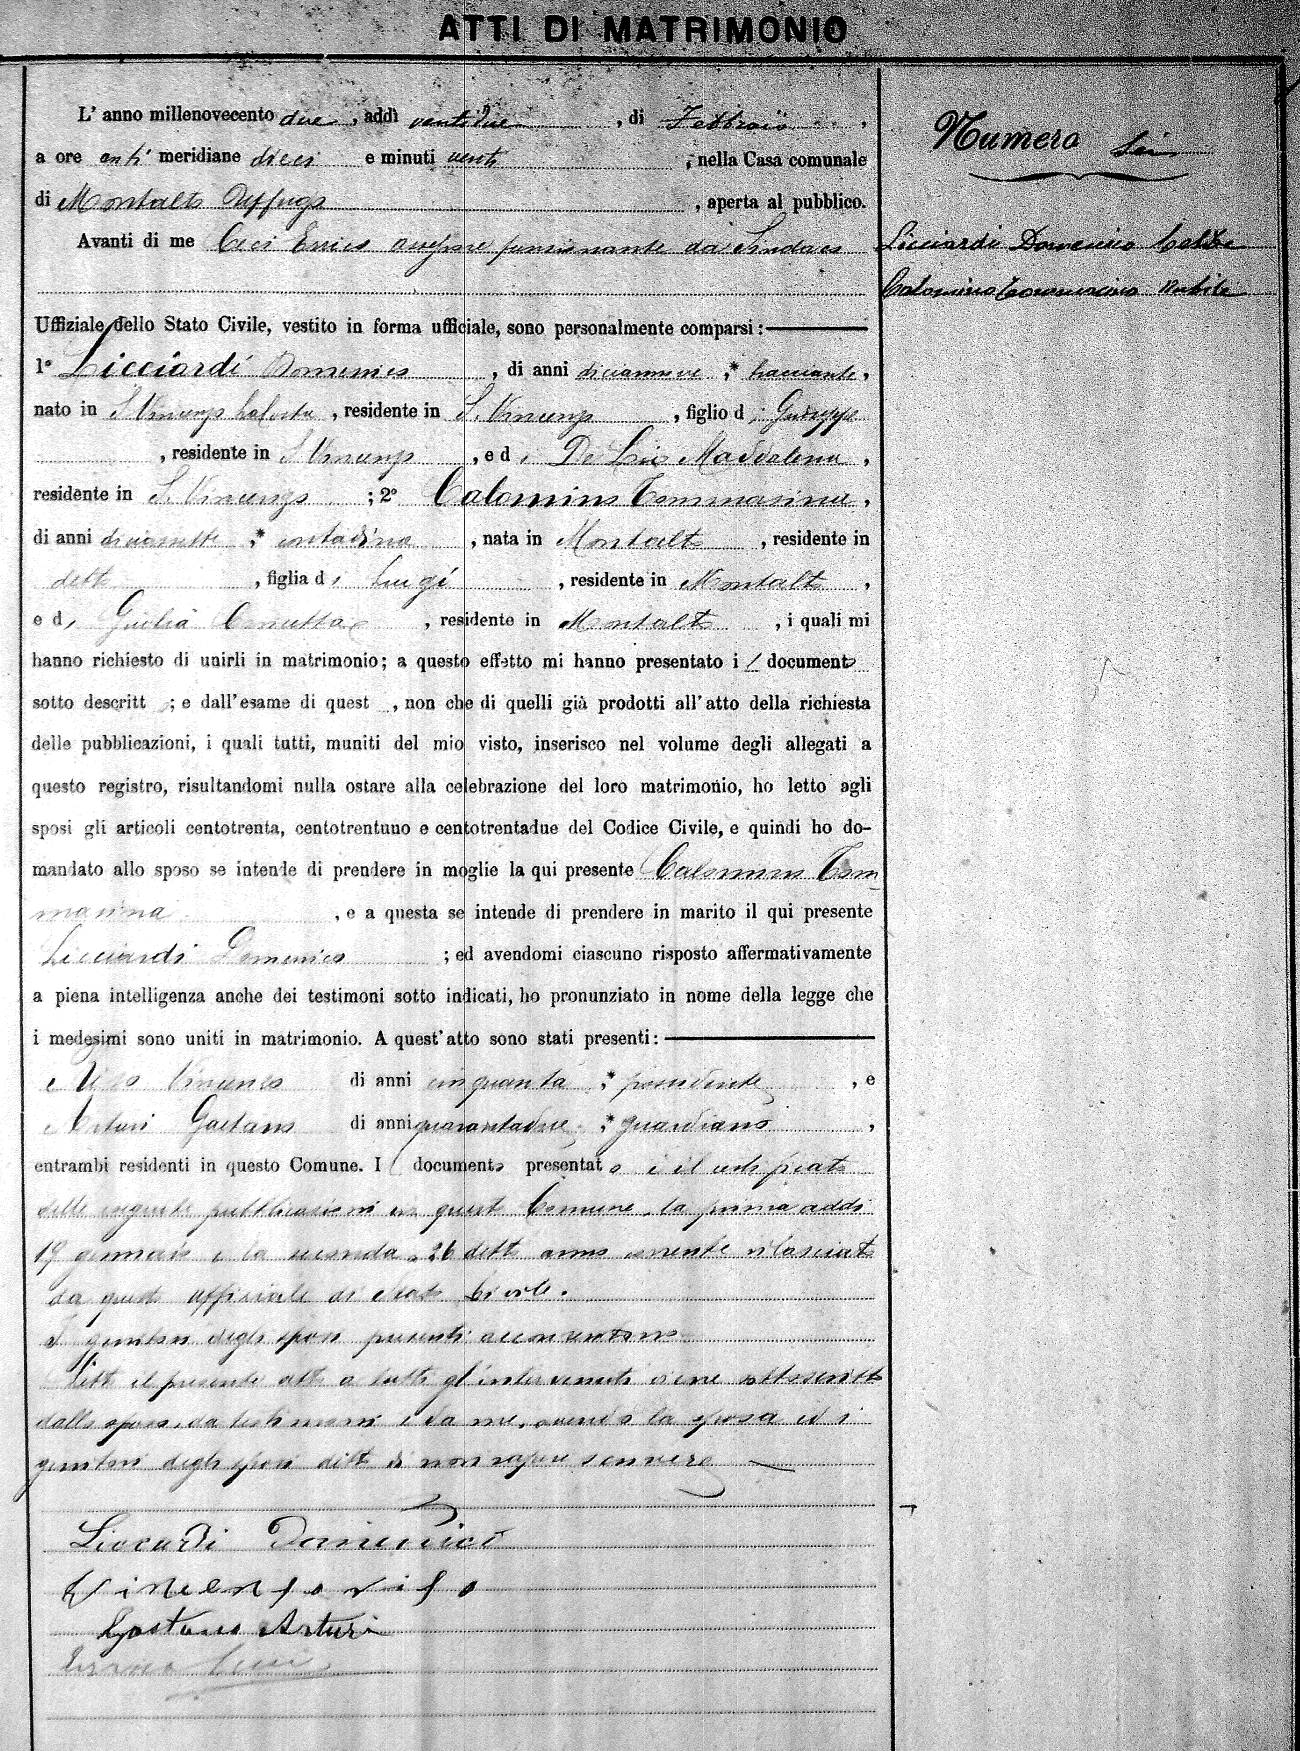 ATTI DI MATRIMONIO
L' anno millenovecento due, addì ventidue, di Febbraio,
a ore anti meridiane dieci e minuti venti, nella Casa comunale
di Montalto Uffugo, aperta al pubblico.
Avanti di me Ceci Enrico assessore funzionante da Sindaco
Uffiziale dello Stato Civile, vestito in forma ufficiale, sono personalmente comparsi:
1° Licciardi Domenico, di anni diciannove, * bracciante,
nato in S. Vincenzo la Costa, residente in S. Vincenzo, figlio di Giuseppe
, residente in S. Vincenzo, e di De Maddalena,
residente in S. Vincenzo; 2° Calomino Tommasina,
di anni diciassette, * contadina, nata in Montalto, residente in
detto, figlia di Luigi, residente in Montalto,
e di Giulia, residente in Montalto, i quali mi
hanno richiesto di unirli in matrimonio; a questo effetto mi hanno presentato i l documento
sotto descritt ; e dall'esame di quest , non che di quelli già prodotti all'atto della richiesta
delle pubblicazioni, i quali tutti, muniti del mio visto, inserisco nel volume degli allegati a
questo registro, risultandomi nulla ostare alla celebrazione del loro matrimonio, ho letto agli
sposi gli articoli centotrenta, centotrentuno e centotrentadue del Codice Civile, e quindi ho do-
mandato allo sposo se intende di prendere in moglie la qui presente Calomino Tom
masina, e a questa se intende di prendere in marito il qui presente
Licciardi Domenico; ed avendomi ciascuno risposto affermativamente
a piena intelligenza anche dei testimoni sotto indicati, ho pronunziato in nome della legge che
i medesimi sono uniti in matrimonio. A quest'atto sono stati presenti:
Vincenzo di anni cinquanta, * possidente, e
Arturi Gaetano di anni quarantadue, * guardiano,
entrambi residenti in questo Comune. I l documento presentato è il certificato
delle eseguite pubblicazioni in questo Comune, la prima addì
19 gennaio e la seconda 26 detto anno corrente rilasciato
da questo ufficiale di Stato Civile.
I genitori degli sposi presenti acconsentono
Letto il presente atto a tutti gl'intervenuti viene sottoscritto
dallo sposo, da testimoni e da me, avendo la sposa ed i
genitori degli sposi detto di non sapere scrivere
Liccardi Domenico
Vincenzo
Gaetano Arturi
Enrico Ceci
Numero sei
Licciardi Domenico Celibe
Calomino Tommasina Nubile